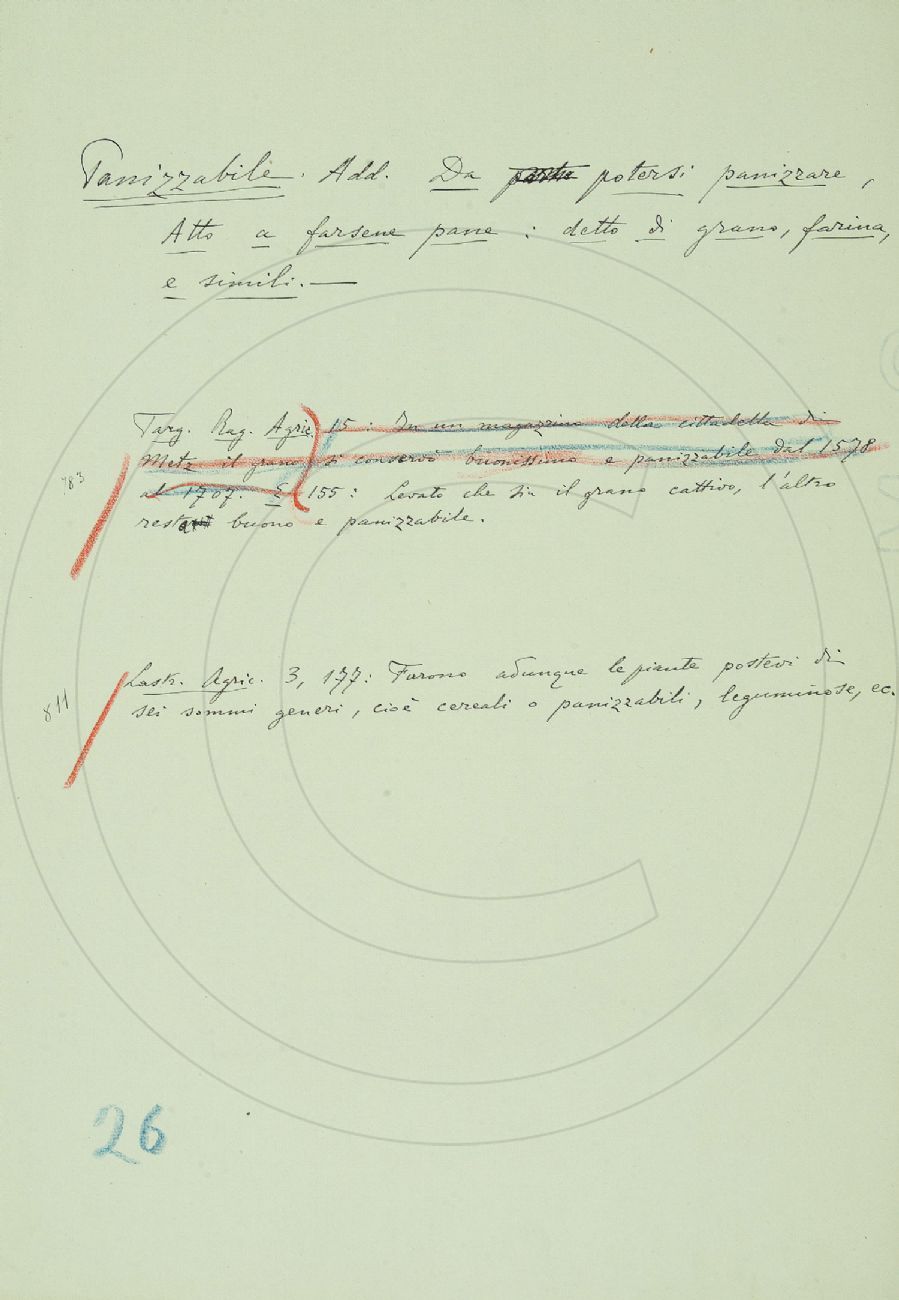 Panizzabile. Add. Da potersi panizzare,
Atto a farsene pane: detto di grano, farina,
e simili. —
Targ. Rag. Agric. 15: In un magazzino della cittadella di
Metz il grano si conservò buonissimo e panizzabile dal 1578
al 1707. E 155: Levato che sia il grano cattivo, l'altro
resta buono e panizzabile.
783
Lastr. Agric. 3, 177: Furono adunque le piante postevi di
sei sommi generi, cioè cereali o panizzabili, leguminose, ec.
811
26